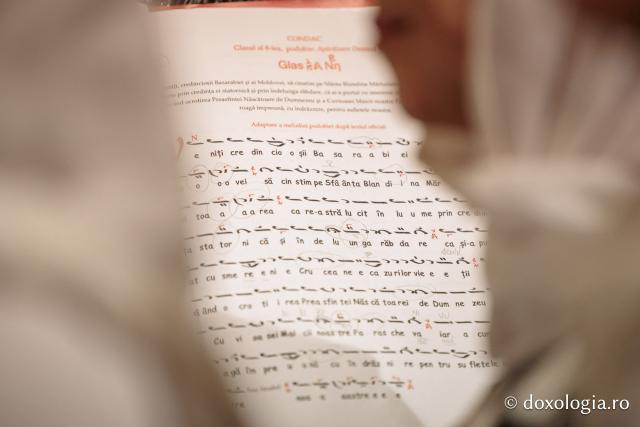 CONDAC
Glasul al 8-lea, podobie: Apărătoare Doamnă
Glas
credincioșii Basarabiei și ai Moldovei, să cinstim pe Sfânta Blandina
prin credința ei statornică și prin îndelunga răbdare, că și-a purtat cu
ocrotirea Preasfintei Născătoare de Dumnezeu și a Cuvioasei Maicii noastre
roagă împreună, cu îndrăznire, pentru sufletele noastre.
Adaptare a melodiei podobiei după textul oficial
e niți cre din cio o șii Ba sa ra a bi ei
o o o vei să cin stim pe Sfâ ânta Blan di i na Măr
toa a a a rea ca re-a stră lu cit în lu u me prin cre di
ța sta tor ni că și în de lu un ga răb da re ca și-a pu
at cu sme re e ni e Cru cea ne e ca zu rilor vie e e ții
ând o cro ti i rea Prea sfin tei Năs că toa rei de Dum ne zeu
Cu vi oa sei Mai cii noas tre Pa ras che va iar a cum
gă în pre u u nă cu în drăz ni re pen tru su fle te le
noas tre e e e
© doxologia.ro